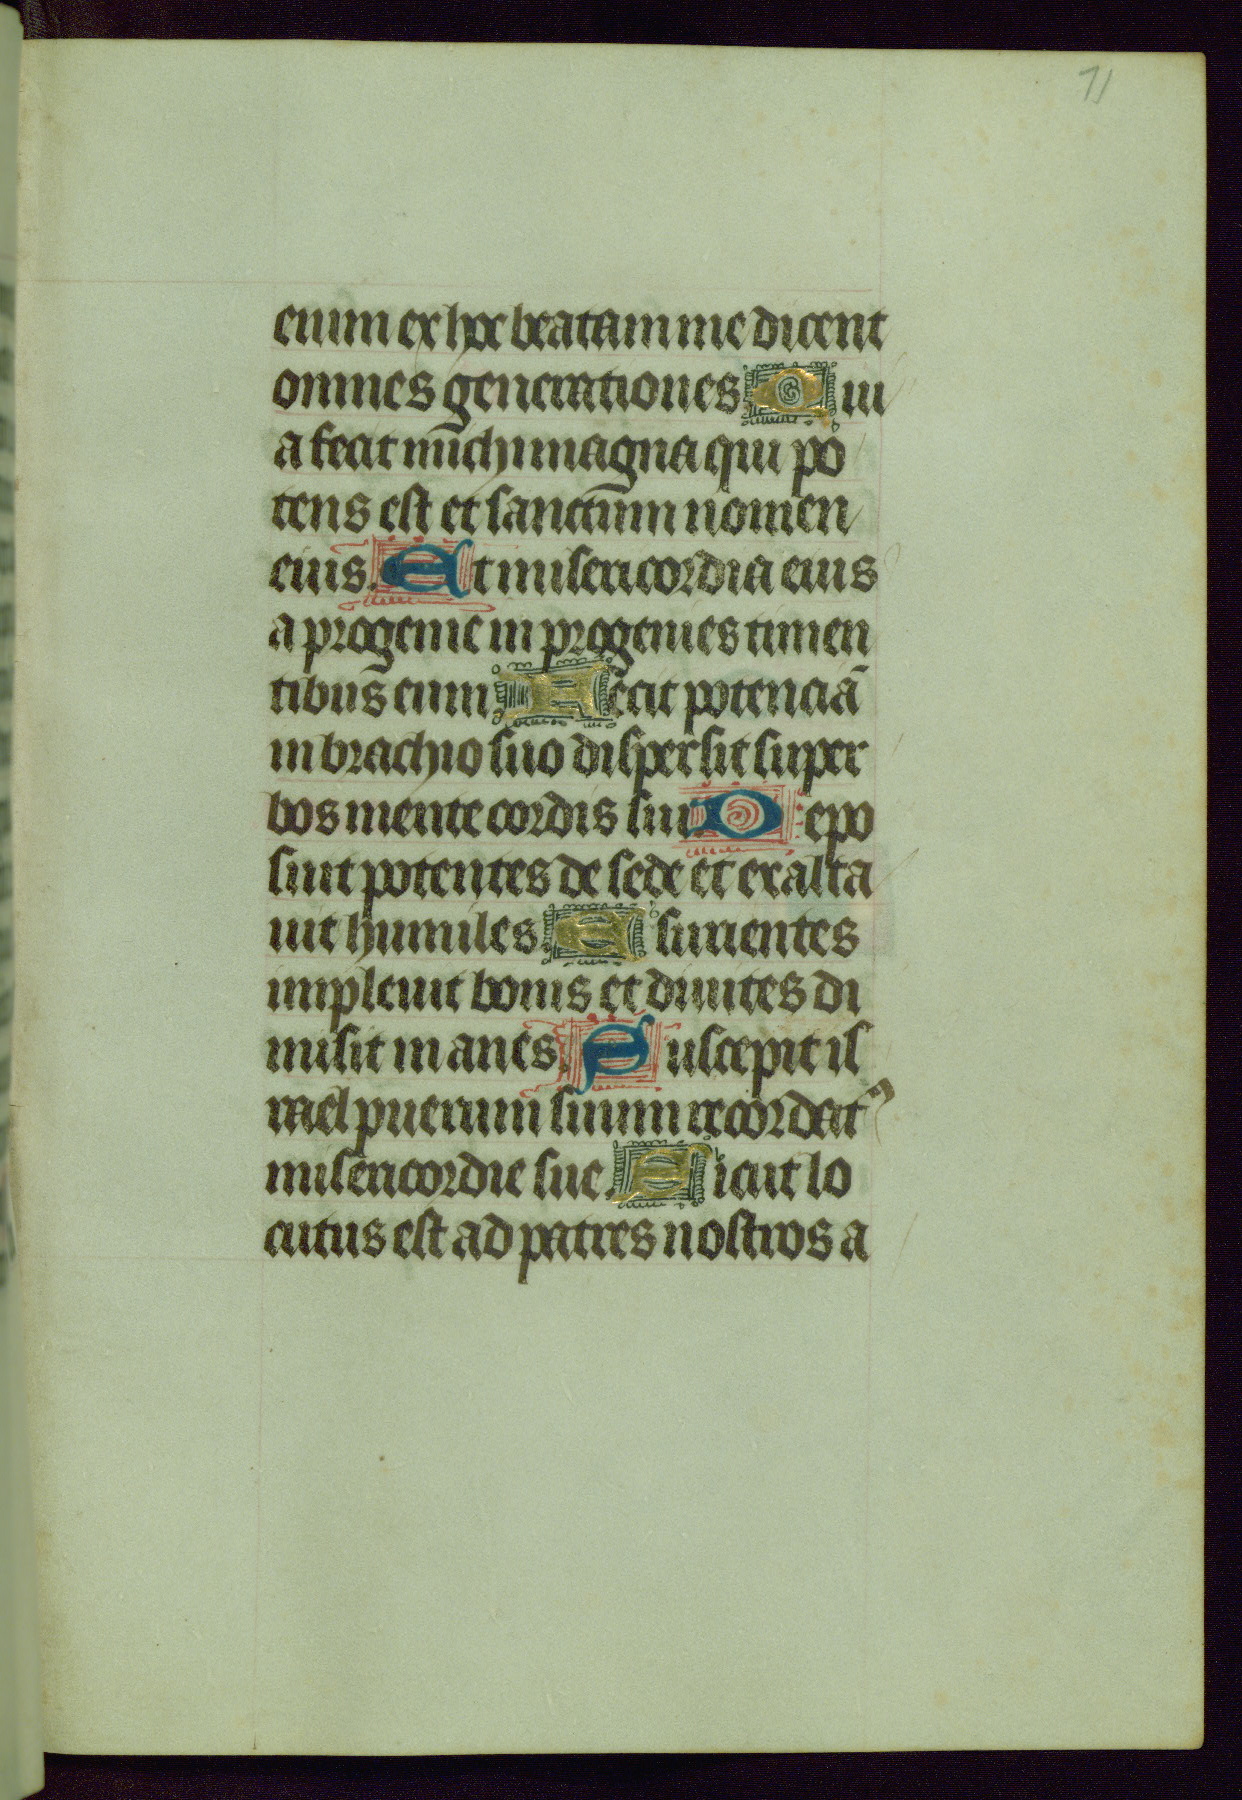 71
enim ex hoc beatam me dicent
omnes generationes. Qui
a fecit michi magna qui po
tens est et sanctum nomen
eius. Et misericordia eius
a progenie in progenies timen
tibus eum. Fecit potenciā
in brachio suo dispersit super
bos mente cordis sui. Depo
suit potentes de sede et exalta
uit humiles. Esurientes
impleuit bonis et diuites di
misit inanes. Suscepit is
rael puerum suum recordat᷒
misericordie sue. Sicut lo
cutus est ad patres nostros a